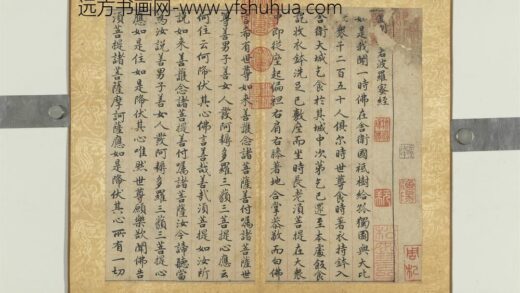 远方书画网-www.yfshuhua.com
金剛般若波羅蜜經
如是我聞一時佛在舍衛國祇樹給孤獨園與大比
丘衆千二百五十人俱尔時世尊食時著衣持鉢入
舍衛大城乞食於其城中次第乞已還至本處飯食
訖收衣鉢洗足已敷座而坐時長老須菩提在大衆
中即從座起偏袒右肩右膝著地合掌恭敬而白佛
言希有世尊如來善護念諸菩薩善付囑諸菩薩世
尊善男子善女人發阿耨多羅三藐三菩提心應云
何住云何降伏其心佛言善哉善哉須菩提如汝所
說如來善護念諸菩薩善付囑諸菩薩汝今諦聽當
爲汝說善男子善女人發阿耨多羅三藐三菩提心
應如是住如是降伏其心唯然世尊願樂欲聞佛告
須菩提諸菩薩摩訶薩應如是降伏其心所有一切